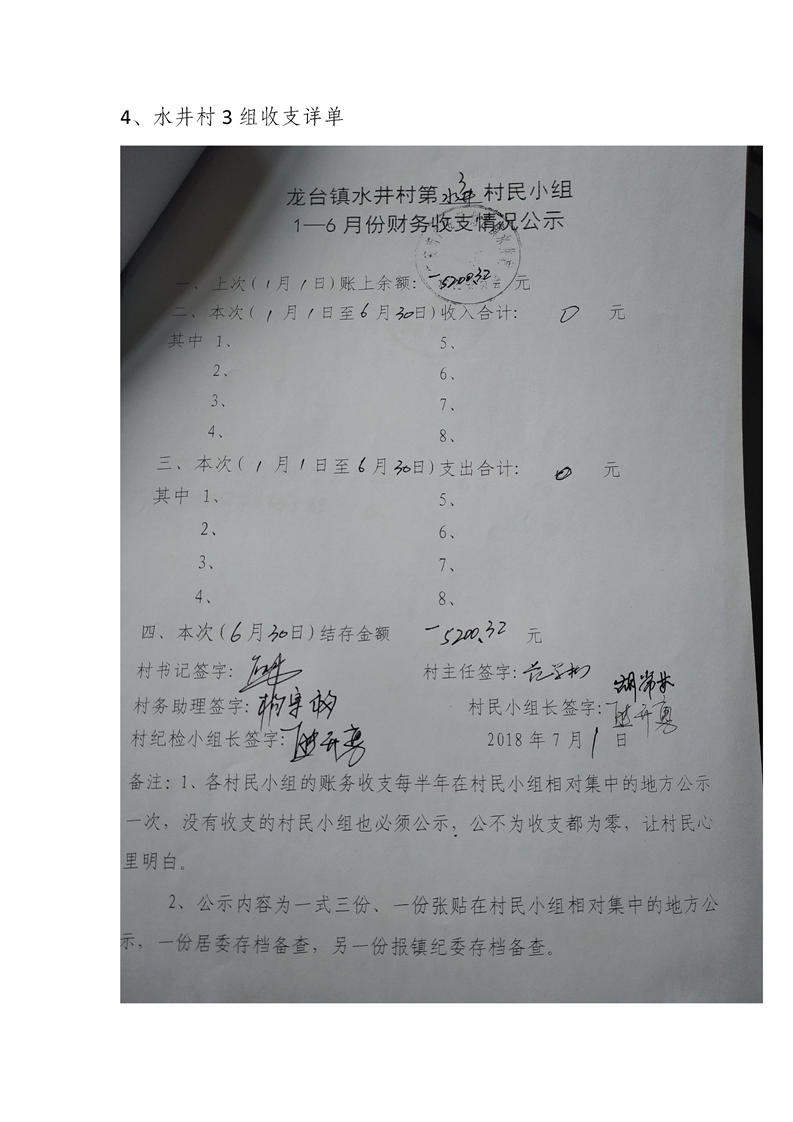 4、水井村3组收支详单
龙台镇水井村第3水井村民小组
1—6月份财务收支情况公示
一、上次(1月1日)账上余额：-5200.32元
二、本次(1月1日至6月30日)收入合计： 0 元
其中 1、 5、
2、 6、
3、 7、
4、 8、
三、本次(1月1日至6月30日)支出合计： 0 元
其中 1、 5、
2、 6、
3、 7、
4、 8、
四、本次(6月30日)结存金额 -5200.32 元
村书记签字： 村主任签字：
村务助理签字： 村民小组长签字：
村纪检小组长签字： 2018年7月1日
备注：1、各村民小组的账务收支每半年在村民小组相对集中的地方公示
一次，没有收支的村民小组也必须公示，公不为收支都为零，让村民心
里明白。
2、公示内容为一式三份、一份张贴在村民小组相对集中的地方公
示，一份居委存档备查，另一份报镇纪委存档备查。